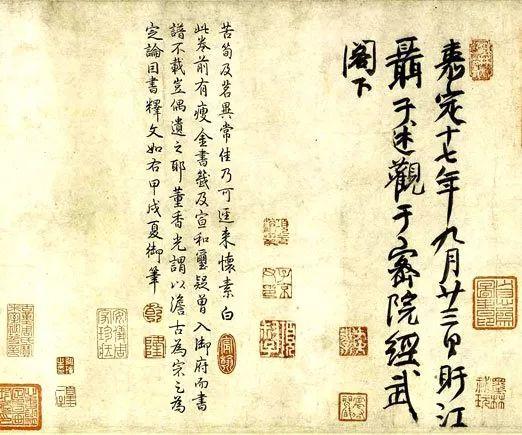 嘉定十七年九月廿三日盱江
聶子述觀于密院經武
閣下
苦筍及茗異常佳乃可逕来懷素白
此卷前有瘦金書籤及宣和璽疑曾入御府而書
譜不載豈偶遺之耶董香光謂以澹古為宗允為
定論因書釋文如右甲戌夏御筆
乾
隆
安儀周家珍藏
墨林祕玩